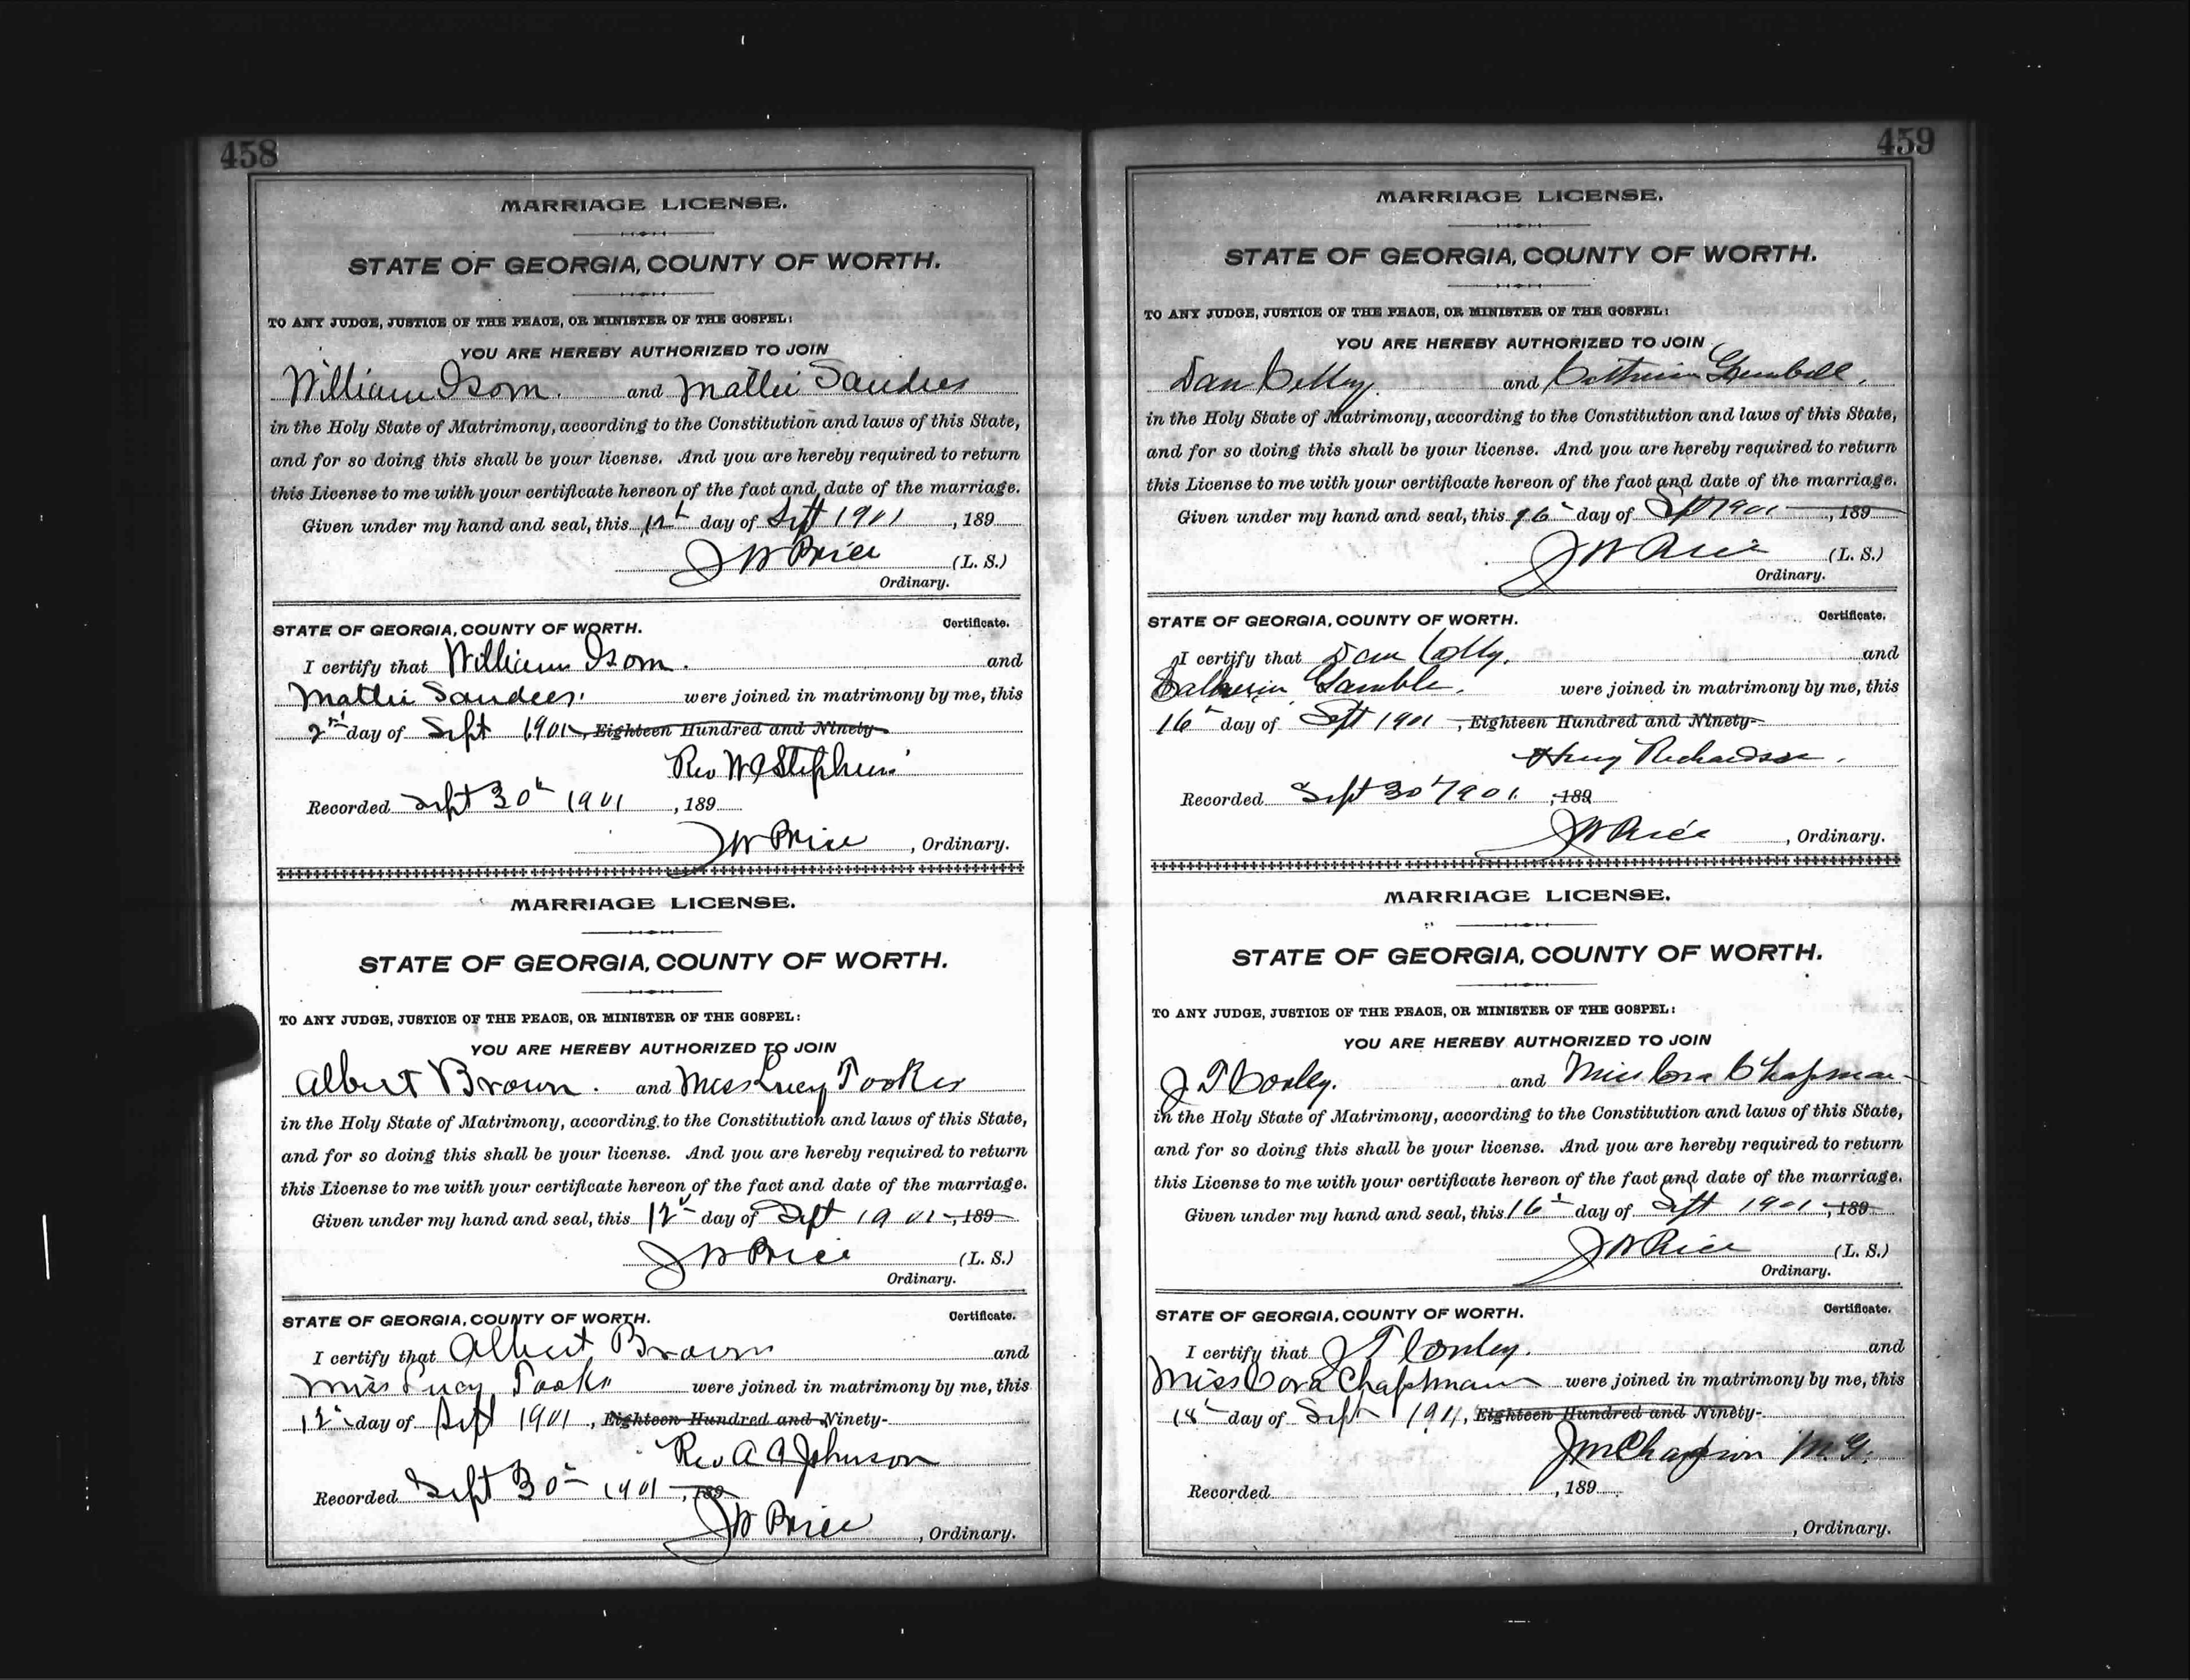 458
MARRIAGE LICENSE.
STATE OF GEORGIA, COUNTY OF WORTH.
TO ANY JUDGE, JUSTICE OF THE PEACE, OR MINISTER OF THE GOSPEL:
YOU ARE HEREBY AUTHORIZED TO JOIN
William Isom. and Mattie Sanders
in the Holy State of Matrimony, according to the Constitution and laws of this State,
and for so doing this shall be your license. And you are hereby required to return
this License to me with your certificate hereon of the fact and date of the marriage.
Given under my hand and seal, this 12th day of Sept 1901, 189
J W Price (L. S.)
Ordinary.
STATE OF GEORGIA, COUNTY OF WORTH. Certificate.
I certify that William Isom. and
Mattie Sanders. were joined in matrimony by me, this
2nd day of Sept 1901, Eighteen Hundred and Ninety-
Rev W C Stephens
Recorded Sept 30th 1901, 189
J W Price, Ordinary.
MARRIAGE LICENSE.
STATE OF GEORGIA, COUNTY OF WORTH.
TO ANY JUDGE, JUSTICE OF THE PEACE, OR MINISTER OF THE GOSPEL:
YOU ARE HEREBY AUTHORIZED TO JOIN
Albert Brown. and Miss Lucy Tookes
in the Holy State of Matrimony, according to the Constitution and laws of this State,
and for so doing this shall be your license. And you are hereby required to return
this License to me with your certificate hereon of the fact and date of the marriage.
Given under my hand and seal, this 12th day of Sept 1901, 189
J W Price (L. S.)
Ordinary.
STATE OF GEORGIA, COUNTY OF WORTH. Certificate.
I certify that Albert Brown and
Miss Lucy Tooks were joined in matrimony by me, this
12th day of Sept 1901, Eighteen Hundred and Ninety-
Rev A A Johnson
Recorded Sept 30th 1901, 189
J W Price, Ordinary.
459
MARRIAGE LICENSE.
STATE OF GEORGIA, COUNTY OF WORTH.
TO ANY JUDGE, JUSTICE OF THE PEACE, OR MINISTER OF THE GOSPEL:
YOU ARE HEREBY AUTHORIZED TO JOIN
Dan and
in the Holy State of Matrimony, according to the Constitution and laws of this State,
and for so doing this shall be your license. And you are hereby required to return
this License to me with your certificate hereon of the fact and date of the marriage.
Given under my hand and seal, this 16th day of Sept 1901, 189
J W Price (L. S.)
Ordinary.
STATE OF GEORGIA, COUNTY OF WORTH. Certificate.
I certify that Dan and
Gamble. were joined in matrimony by me, this
16th day of Sept 1901, Eighteen Hundred and Ninety-
Henry Richardson.
Recorded Sept 30th 1901, 189
J W Price, Ordinary.
MARRIAGE LICENSE.
STATE OF GEORGIA, COUNTY OF WORTH.
TO ANY JUDGE, JUSTICE OF THE PEACE, OR MINISTER OF THE GOSPEL:
YOU ARE HEREBY AUTHORIZED TO JOIN
J T Conley. and Miss Cora Chapman
in the Holy State of Matrimony, according to the Constitution and laws of this State,
and for so doing this shall be your license. And you are hereby required to return
this License to me with your certificate hereon of the fact and date of the marriage.
Given under my hand and seal, this 16th day of Sept 1901, 189
J W Price (L. S.)
Ordinary.
STATE OF GEORGIA, COUNTY OF WORTH. Certificate.
I certify that J T Conley. and
Miss Cora Chapman were joined in matrimony by me, this
18th day of Sept 1901, Eighteen Hundred and Ninety-
J M M. G.
Recorded , 189
, Ordinary.